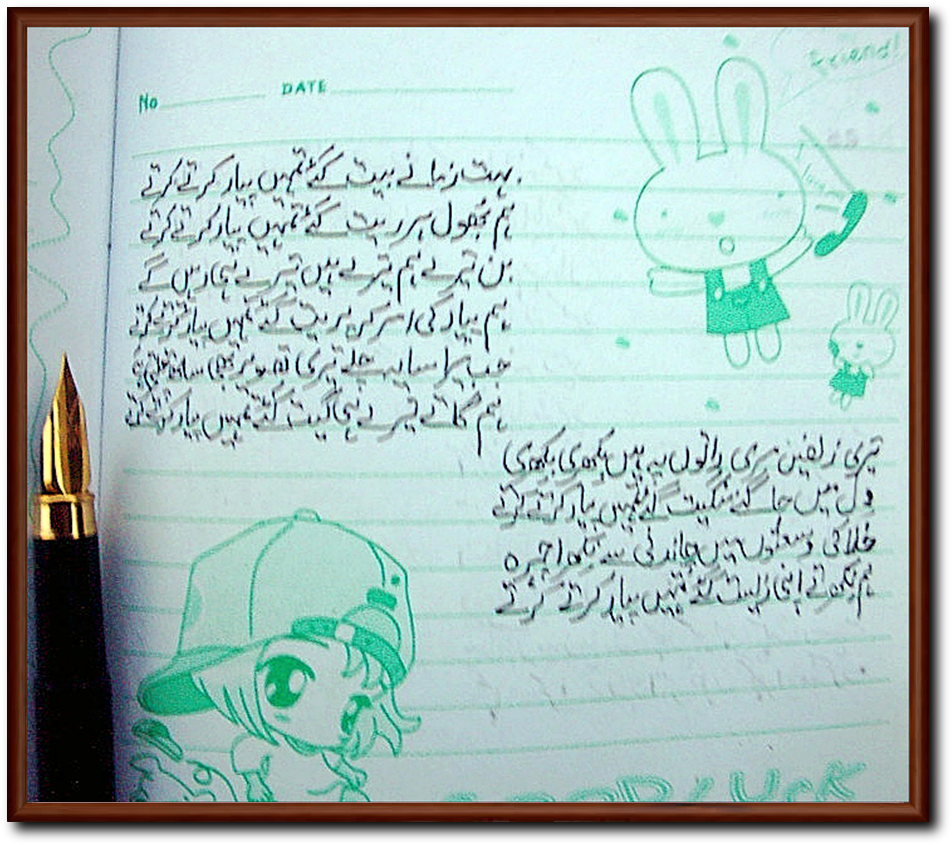 Friend!
No
DATE
بہت زمانے بیت گئے تمہیں پیار کرتے کرتے
ہم بھول ہر ریت گئے تمہیں پیار کرتے کرتے
بن تیرے ہم تیرے ہیں تیرے ہی رہیں گے
ہم پیار کی اسر کر پریت گئے تمہیں پیار کرتے کرتے
جب میرا سایہ چلے تیری تصویر بھی ساتھ چلتی ہے
ہم گاتے تیرے ہی گیت گئے تمہیں پیار کرتے کرتے
تیری زلفیں میری راتوں پہ ہیں بکھری بکھری
دل میں جاگے سنگیت گئے تمہیں پیار کرتے کرتے
خلا کی وسعتوں میں چاندنی سے نکھرا چہرہ
ہم کھوتے اپنی زیست گئے تمہیں پیار کرتے کرتے
GOOD LUCK